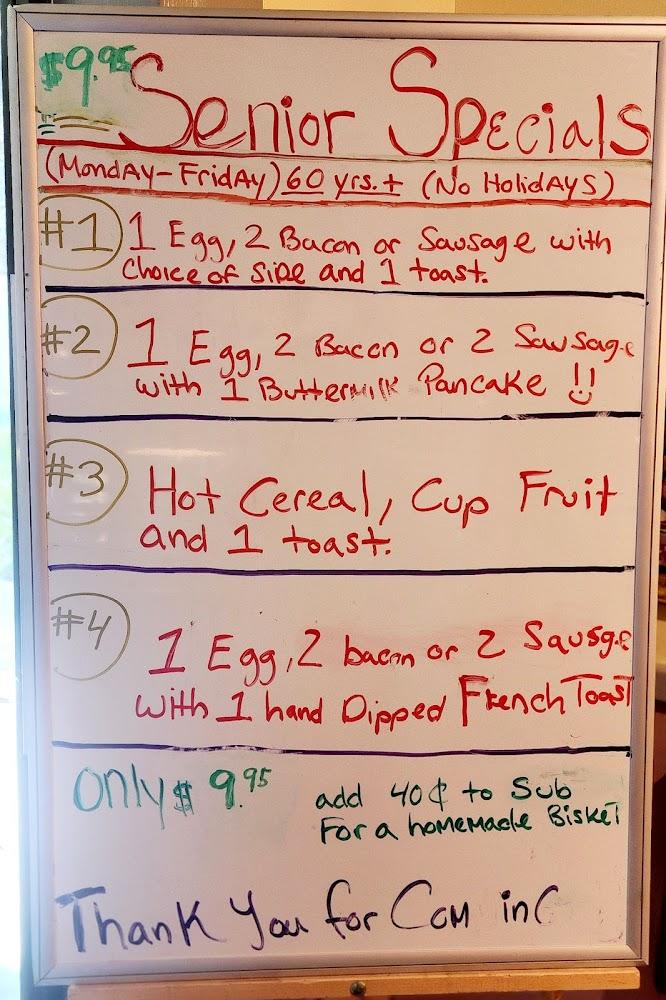 $9.95
Senior Specials
(Monday-Friday) 60 yrs.+ (No Holidays)
#1 1 Egg, 2 Bacon or Sausage with
Choice of Side and 1 toast.
#2 1 Egg, 2 Bacon or 2 Sausage
with 1 Buttermilk Pancake !!
#3 Hot Cereal, Cup Fruit
and 1 toast.
#4 1 Egg, 2 bacon or 2 Sausge
with 1 hand Dipped French Toast
Only $ 9.95 add 40¢ to Sub
For a homemade Bisket
Thank You for Com inG